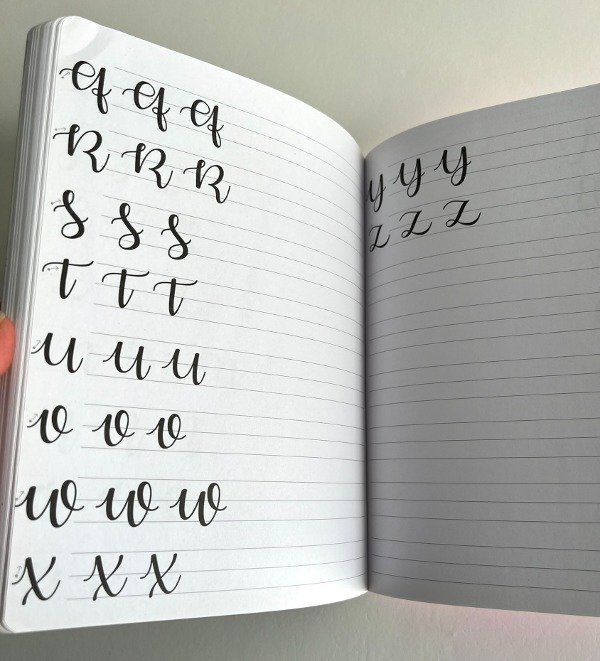 Q Q Q
R R R
S S S
T T T
U U U
V V V
W W W
X X X
Y Y Y
Z Z Z